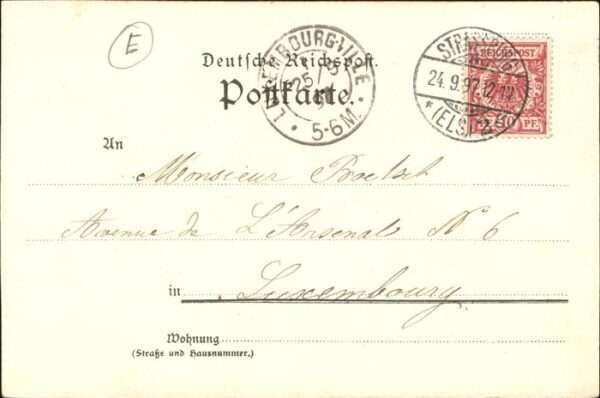 E
Deutsche Reichspost.
Postkarte.
LUXEMBOURG-VILLE
25
5-6M.
STRASSBURG
24.9.97.
* (ELS) 2.
REICHSPOST
10 PF.
An
Monsieur
Avenue de L'Arsenal Nº 6
in Luxembourg
Wohnung
(Straße und Hausnummer.)